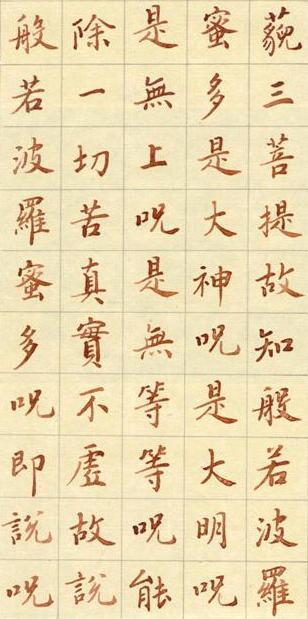 藐三菩提故知般若波羅
蜜多是大神呪是大明呪
是無上呪是無等等呪能
除一切苦真實不虛故說
般若波羅蜜多呪即說呪